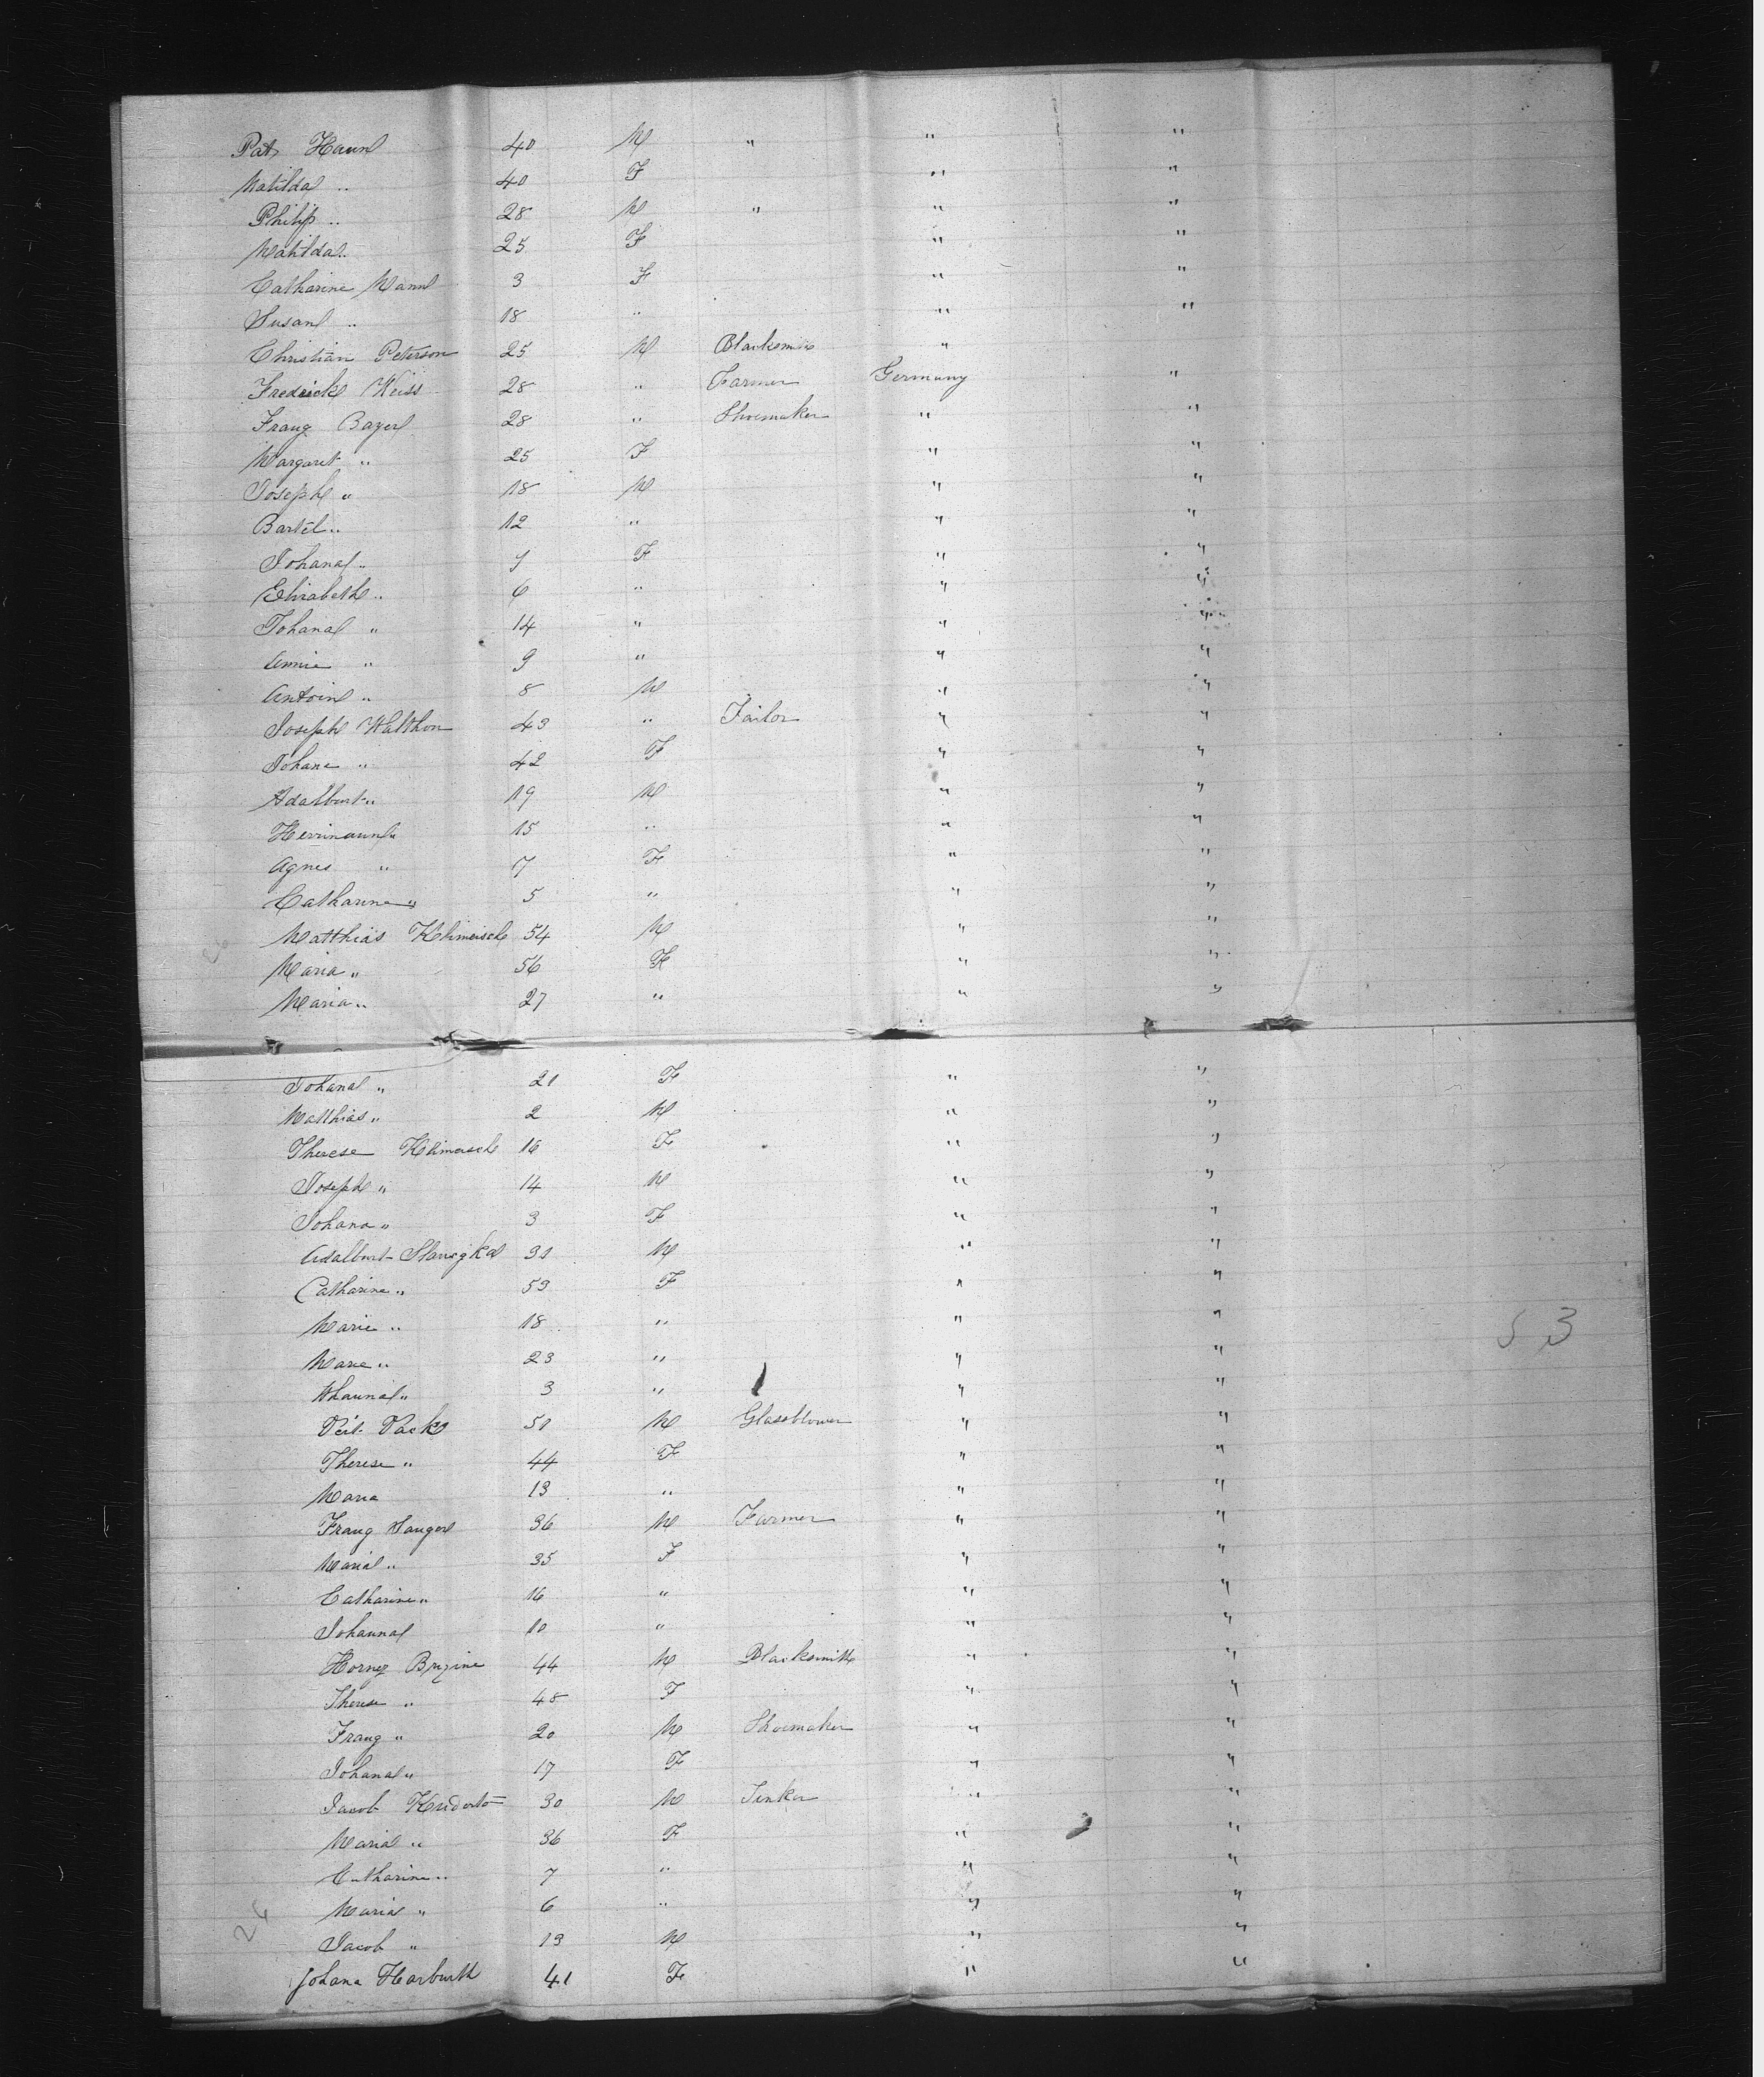 Pat Haun 40 M " " "
Matilda " 40 F " "
Philip " 28 M " " "
Matilda " 25 F " "
Catharine Mann 3 F " "
Susan " 18 " " "
Christian Peterson 25 M Blacksmith "
Fredrick Weiss 28 " Farmer Germany "
Franz Bayer 28 " Shoemaker " "
Margaret " 25 F " "
Joseph " 18 M " "
Bartel " 12 " " "
Johana " F " "
Elizabeth " 6 " " "
Johana " 14 " " "
Annie " 9 " " "
Antoin " 8 M " "
Joseph Walthon 43 " Tailor " "
Johana " 42 F " "
Adalbert " 19 M " "
Herrmann " 15 " " "
Agnes " 7 F " "
Catharine " 5 " " "
Matthias Klimeisch 54 M " "
Maria " 56 F " "
Maria " 27 " " "
Johana " 21 F " "
Matthias " 2 M " "
Therese Klimeisch 16 F " "
Joseph " 14 M " "
Johana " 3 F " "
Adalbert 31 M " "
Catharine " 53 F " "
Marie " 18 " " "
Marie " 23 " " "
" 3 " " "
53
Veit Pack 51 M Glassblower " "
Therese " 44 F " "
Maria 13 " " "
Franz Sanger 36 M Farmer " "
Maria " 35 F " "
Catharine " 16 " " "
Johanna 10 " " "
44 M Blacksmith " "
Therese " 48 F " "
Franz " 20 M Shoemaker " "
Johana " 17 F " "
Jacob 30 M Tinker " "
Maria " 36 F " "
Catharine " 7 " " "
Maria " 6 " " "
Jacob " 13 M " "
Johana Harburth 41 F " "